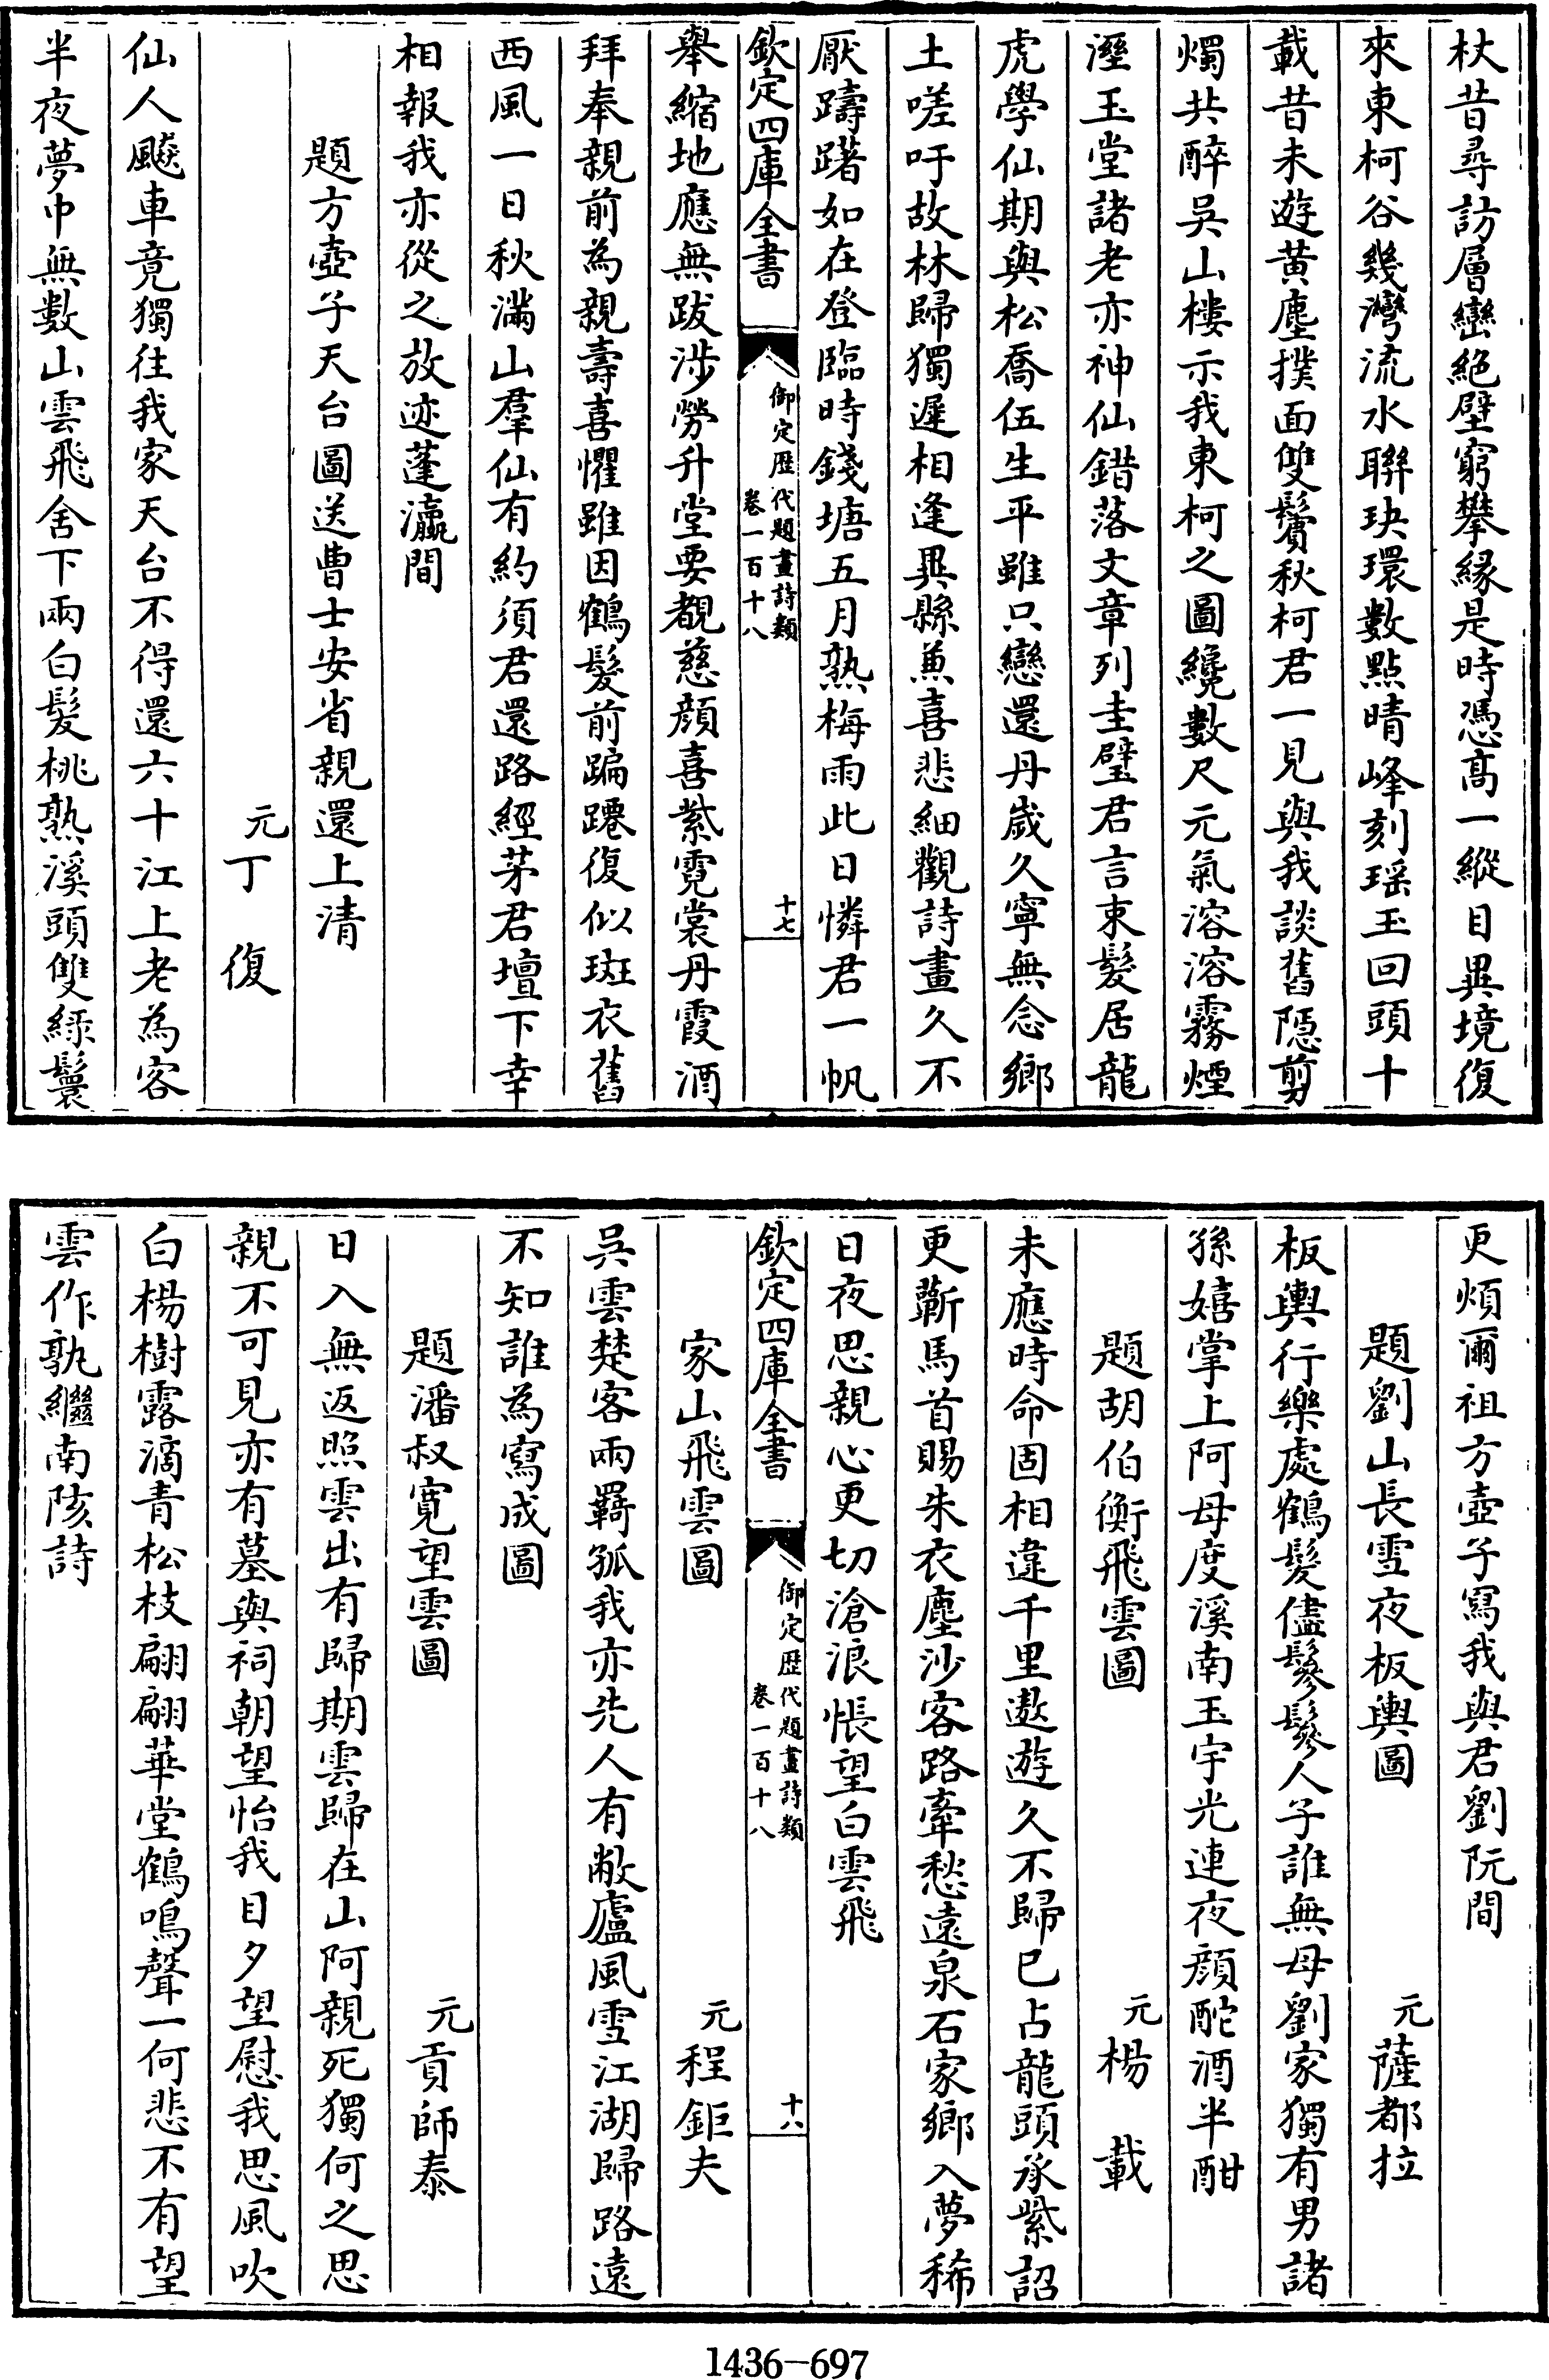 杖昔尋訪層巒絶壁窮攀縁是時憑髙一縱目異境復
來東柯谷幾灣流水聯玦環數點晴峰刻瑶玉回頭十
載昔未遊黄塵撲面雙鬢秋柯君一見與我談舊隠剪
燭共醉吳山樓示我東柯之圖纔數尺元氣溶溶霧煙
溼玉堂諸老亦神仙錯落文章列圭璧君言束髮居龍
虎學仙期與松喬伍生平雖只戀還丹歲久寧無念鄉
土嗟吁故林歸獨遲相逢異縣兼喜悲細觀詩畫久不
厭躊躇如在登臨時錢塘五月熟梅雨此日憐君一帆
欽定四庫全書
御定歴代題畫詩類
卷一百十八
十七
舉縮地應無跋涉勞升堂要覩慈顔喜紫霓裳丹霞酒
拜奉親前為親壽喜懼雖因鶴髮前蹁躚復似斑衣舊
西風一日秋滿山羣仙有約須君還路經茅君壇下幸
相報我亦從之放迹蓬瀛間
題方壺子天台圖送曹士安省親還上清
元丁復
仙人飈車竟獨往我家天台不得還六十江上老為客
半夜夢巾無數山雲飛舍下兩白髮桃熟溪頭雙緑鬟
更煩爾祖方壺子寫我與君劉阮間
題劉山長雪夜板輿圖
元薩都拉
板輿行樂處鶴髮儘鬖鬖人子誰無母劉家獨有男諸
孫嬉掌上阿母度溪南玉宇光連夜顔酡酒半酣
題胡伯衡飛雲圖
元楊載
未應時命固相違千里遨遊久不歸已占龍頭承紫詔
更蘄馬首賜朱衣塵沙客路牽愁遠泉石家鄉入夢稀
日夜思親心更切滄浪悵望白雲飛
欽定四庫全書
御定歴代題畫詩類
卷一百十八
十八
家山飛雲圖
元程鉅夫
吳雲楚客兩羇孤我亦先人有敝廬風雪江湖歸路遠
不知誰為寫成圖
題潘叔寛望雲圖
元貢師泰
日入無返照雲出有歸期雲歸在山阿親死獨何之思
親不可見亦有墓與祠朝望怡我目夕望慰我思風吹
白楊樹露滴青松枝翩翩華堂鶴鳴聲一何悲不有望
雲作孰繼南陔詩
1436-697